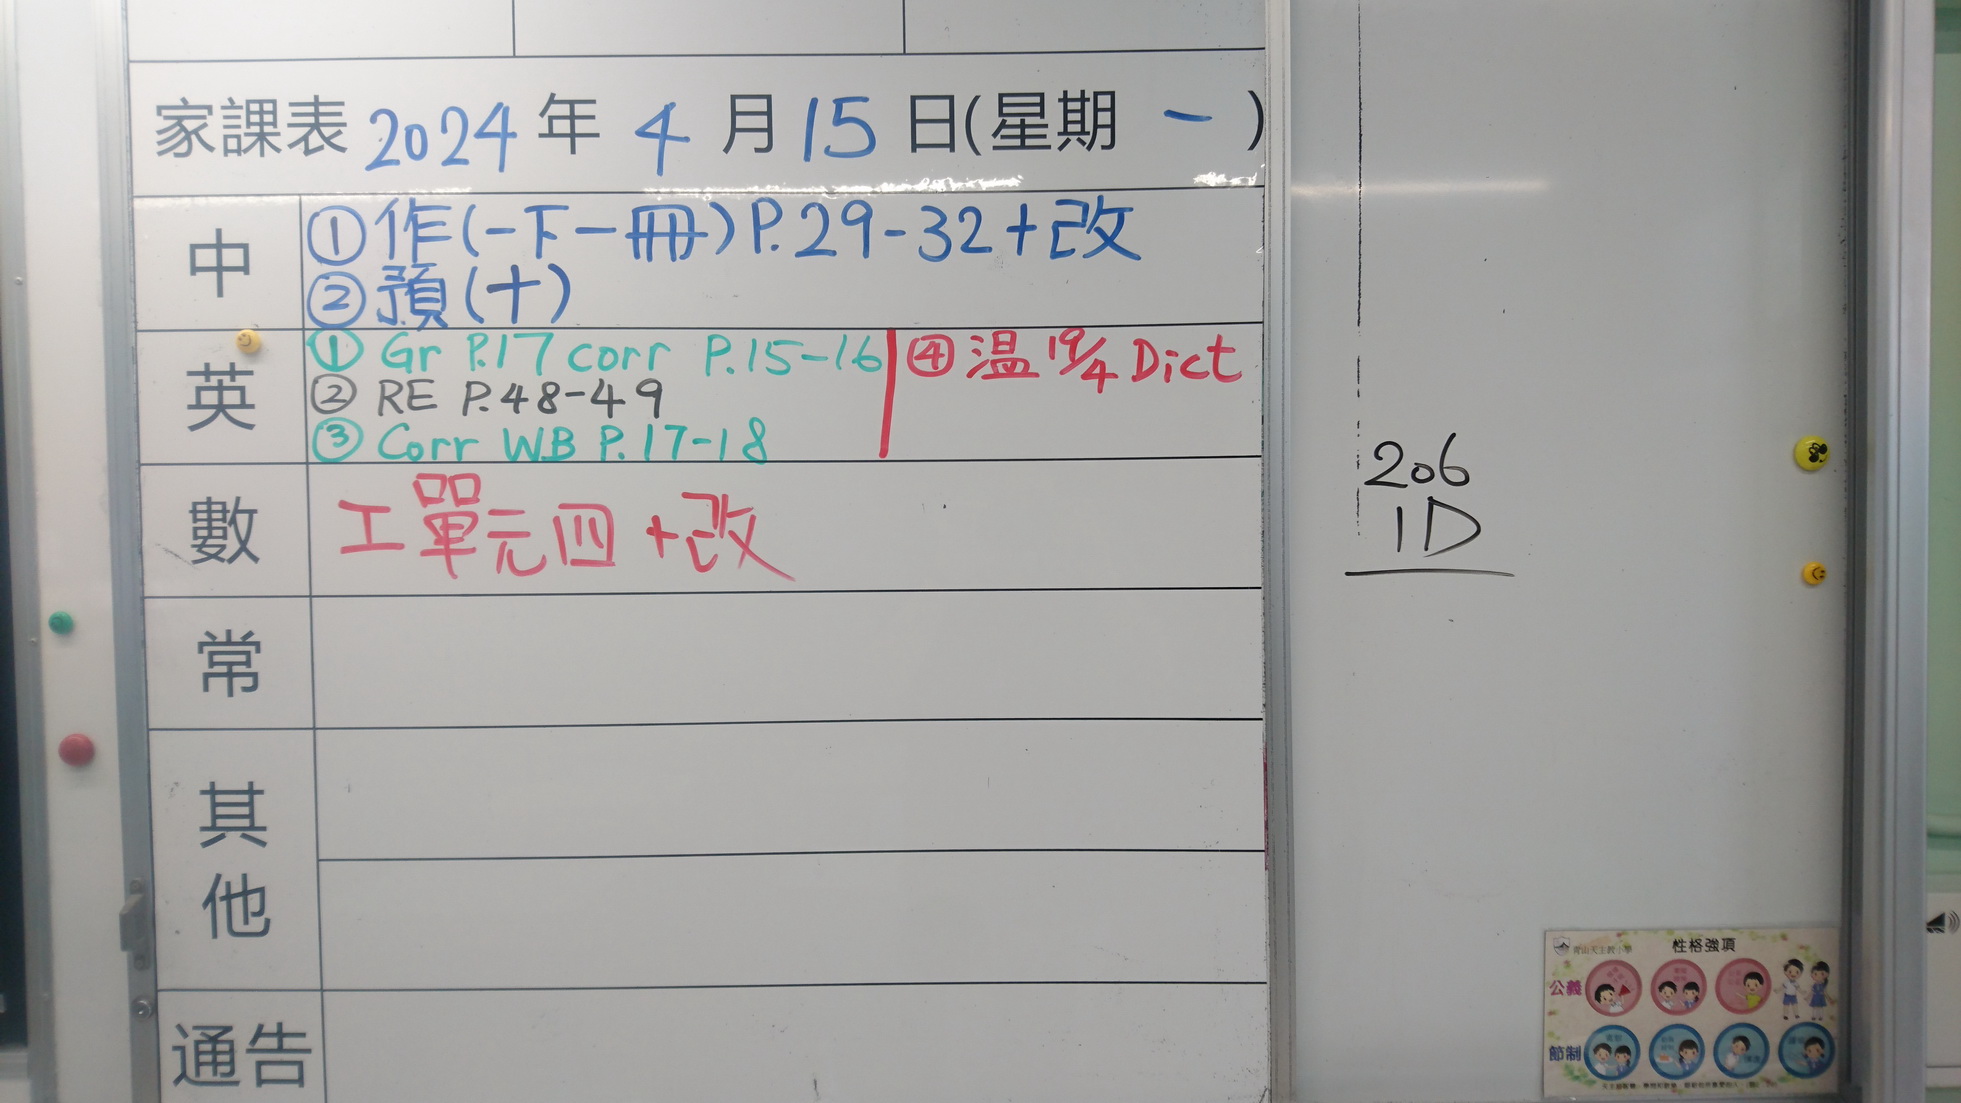 家課表 2024 年 4 月 15 日(星期 一 )
中
①作(一下一冊)P.29-32+改
②預(十)
英
① Gr P.17 corr P.15-16
② RE P.48-49
③ Corr WB P.17-18
④温 19/4 Dict
數
工單元四 +改
常
其他
通告
206
1D
青山天主教小學
性格強項
公義
節制